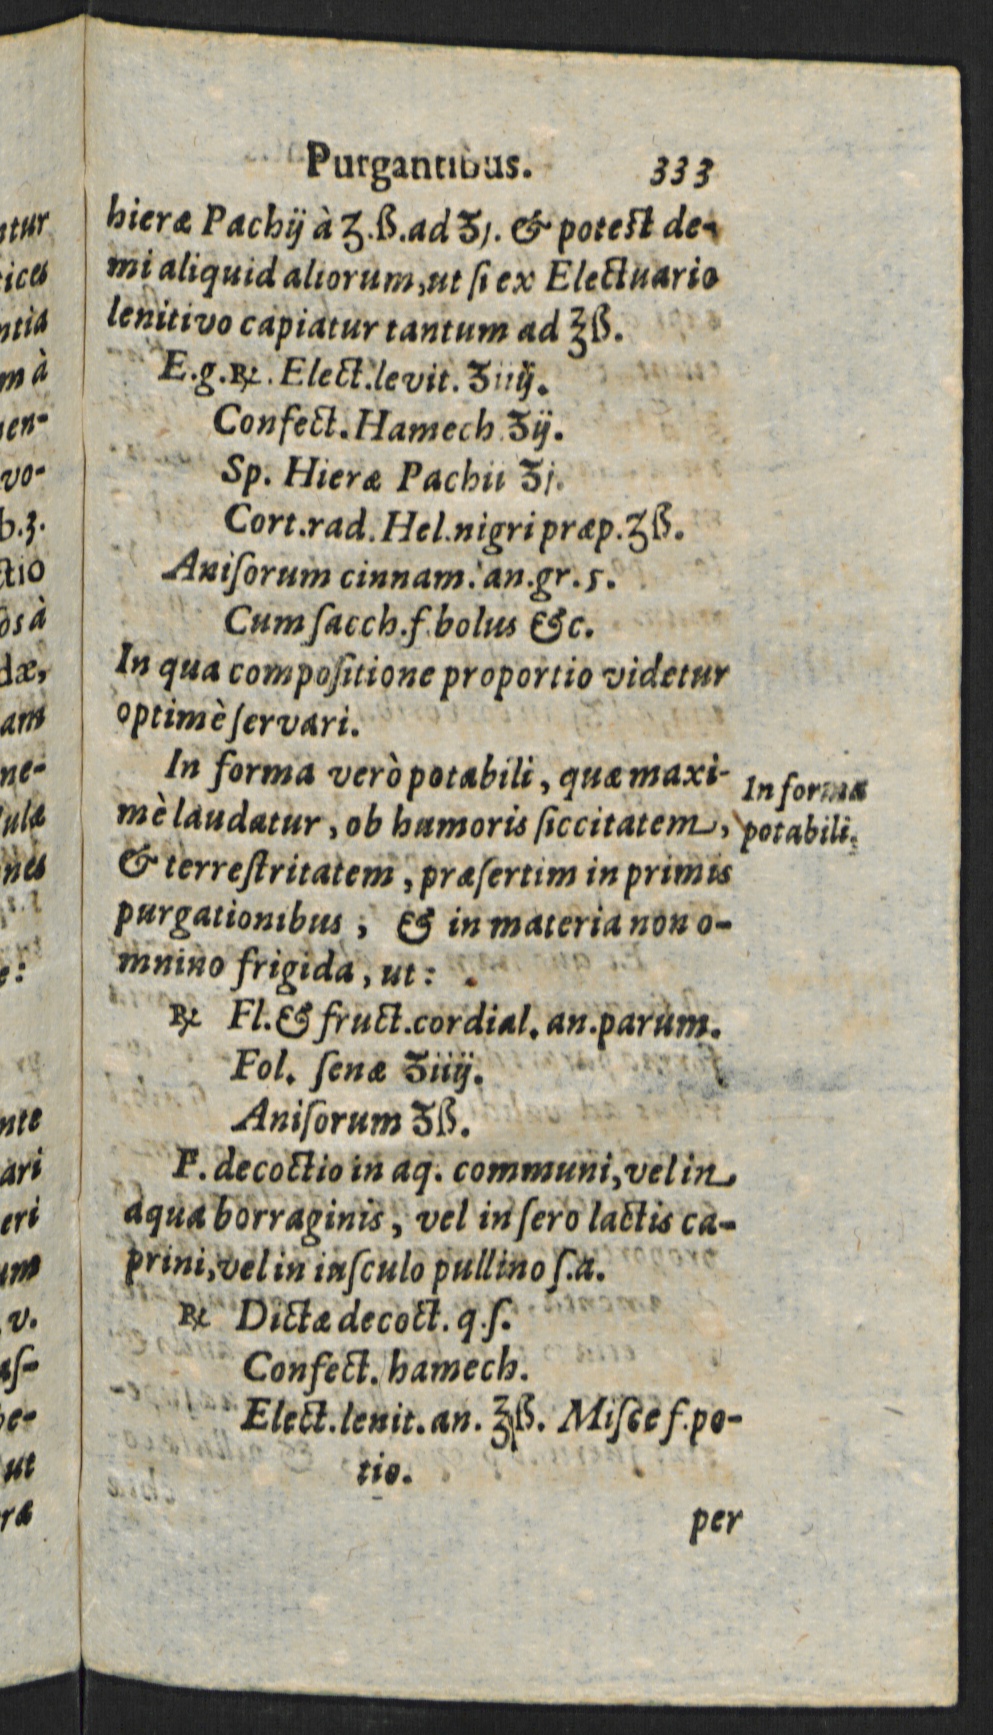 Purgantibus. 333
hieræ Pachij à ʒ.ß.ad ʒj. & potest de-
mi aliquid aliorum,ut ſi ex Electuario
lenitivo capiatur tantum ad ℥ß.
E.g.℞. Elect.levit. ʒiiij.
Confect.Hamech ʒij.
Sp. Hieræ Pachii ʒj.
Cort.rad.Hel.nigri præp.ʒß.
Aniſorum cinnam. an.gr.5.
Cum ſacch.f.bolus &c.
In qua compoſitione proportio videtur
optimè ſervari.
In forma verò potabili, quæ maxi-
mè laudatur, ob humoris ſiccitatem,
& terreſtritatem, præſertim in primis
purgationibus; & in materia non o-
mnino frigida, ut:
In forma
potabili.
℞ Fl.& fruct.cordial. an.parum.
Fol. ſenæ ʒiiij.
Aniſorum ʒß.
F. decoctio in aq. communi,vel in
aqua borraginis, vel in ſero lactis ca-
prini,vel in iuſculo pullino ſ.a.
℞ Dictæ decoct. q.ſ.
Confect. hamech.
Elect.lenit.an. ℥ß. Miſce f.po-
tio.
per
ntur
tices
ntia
m à
en-
vo-
b.3.
ctio
os à
dæ,
am
ne-
ulæ
nes
e:
nte
ari
eri
um
v.
aſ-
be-
ut